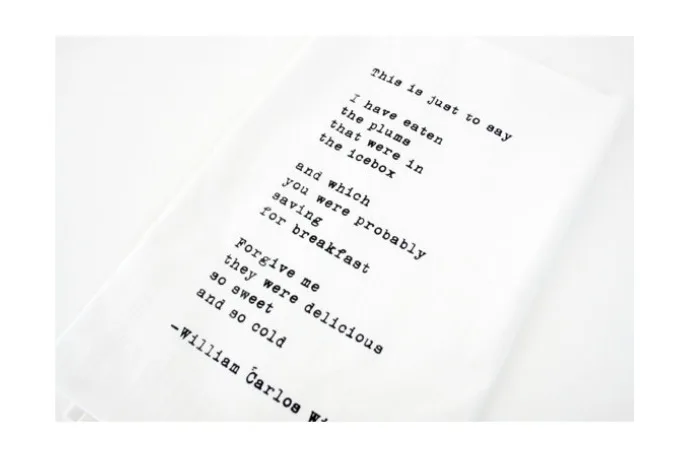 This is just to say
I have eaten
the plums
that were in
the icebox
and which
you were probably
saving
for breakfast
Forgive me
they were delicious
so sweet
and so cold
-William Carlos